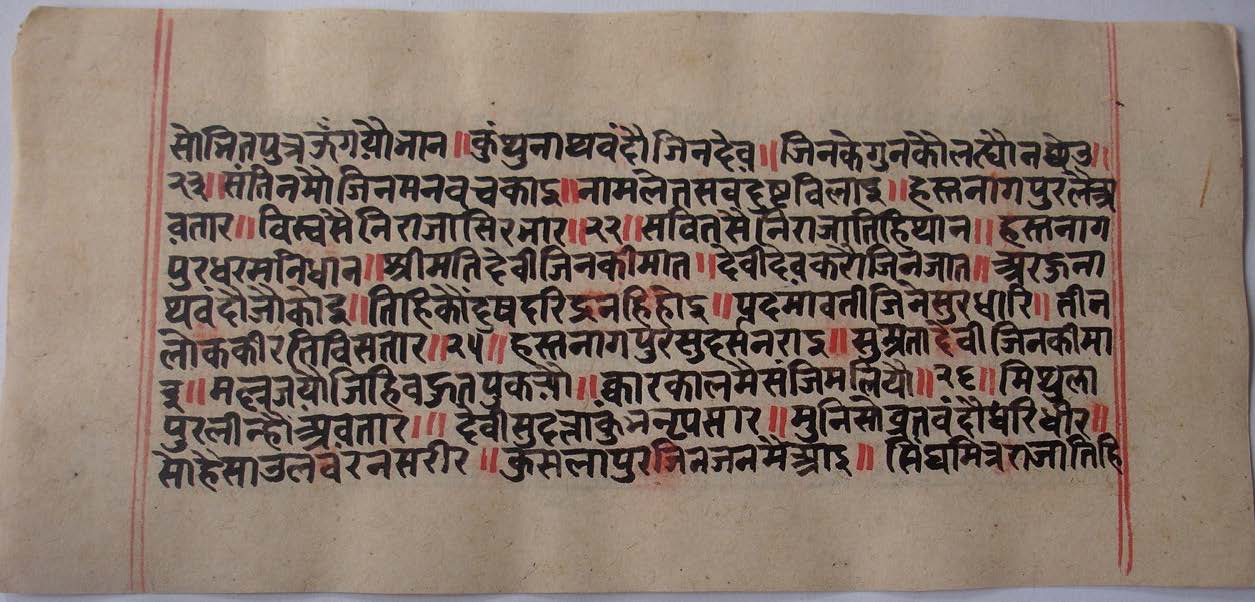 सोभितपुत्रऊगयौभान॥कुंथुनाथवंदौजिनदेव॥जिनकेगुनकौलह्यौनछेउ॥
२३॥संतिनमौजिनमनवचकाइ॥नामलेतसबदुष्टविलाइ॥हस्तनागपुरलेअ
वतार॥विस्वसैनिराजासिरभार॥२२॥सवितसैनिराजातिहिथान॥हस्तनाग
पुरधरसनिधान॥श्रीमतिदेवीजिनकीमात॥देवीदेवकरौजिनजात॥अरहना
थवदौजौकोइ॥तिहिकौंदुषदरिद्रनहिहोइ॥पदमावतीजिनेसुरधारि॥तीन
लोककीरतिविसतार॥२५॥हस्तनागपुरसुदर्सनराइ॥सुमतादेवीजिनकीमा
इ॥मल्लजयौजिहिवहुतपुकर्‍यौ॥क्वारकालमैसंजिमलियौ॥२६॥मिथुला
पुरलीन्हौअवतार॥देवीसुदत्नाकुभनृपसार॥मुनिसोव्रतवंदौधरिधीर॥
सोहैसाउलवरनसरीर॥कुसलापुरजिनजनमैआइ॥सिंघमित्रराजातिहि